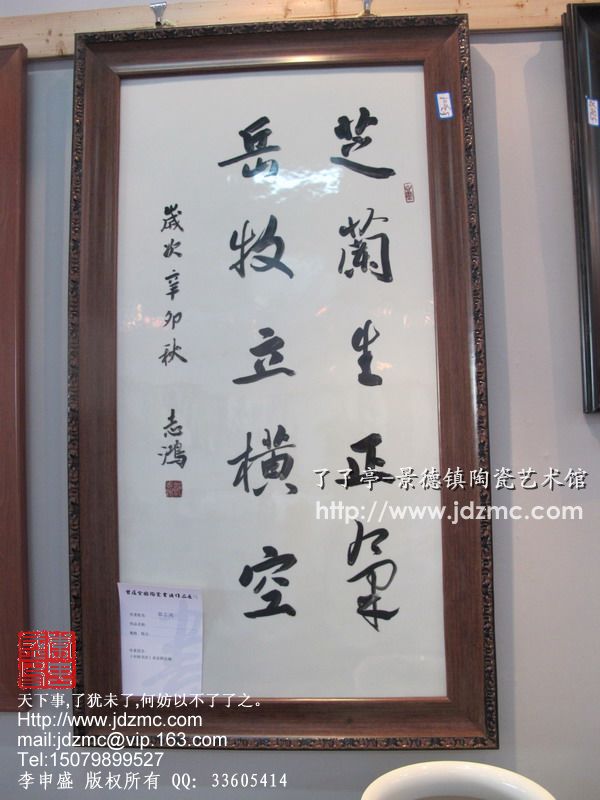 芝蘭生正氣
岳牧立橫空
歲次辛卯秋
志鴻
了了亭-景德镇陶瓷艺术馆
http://www.jdzmc.com
天下事,了犹未了,何妨以不了了之。
Http://www.jdzmc.com
mail:jdzmc@vip.163.com
Tel:15079899527
李申盛 版权所有 QQ: 33605414